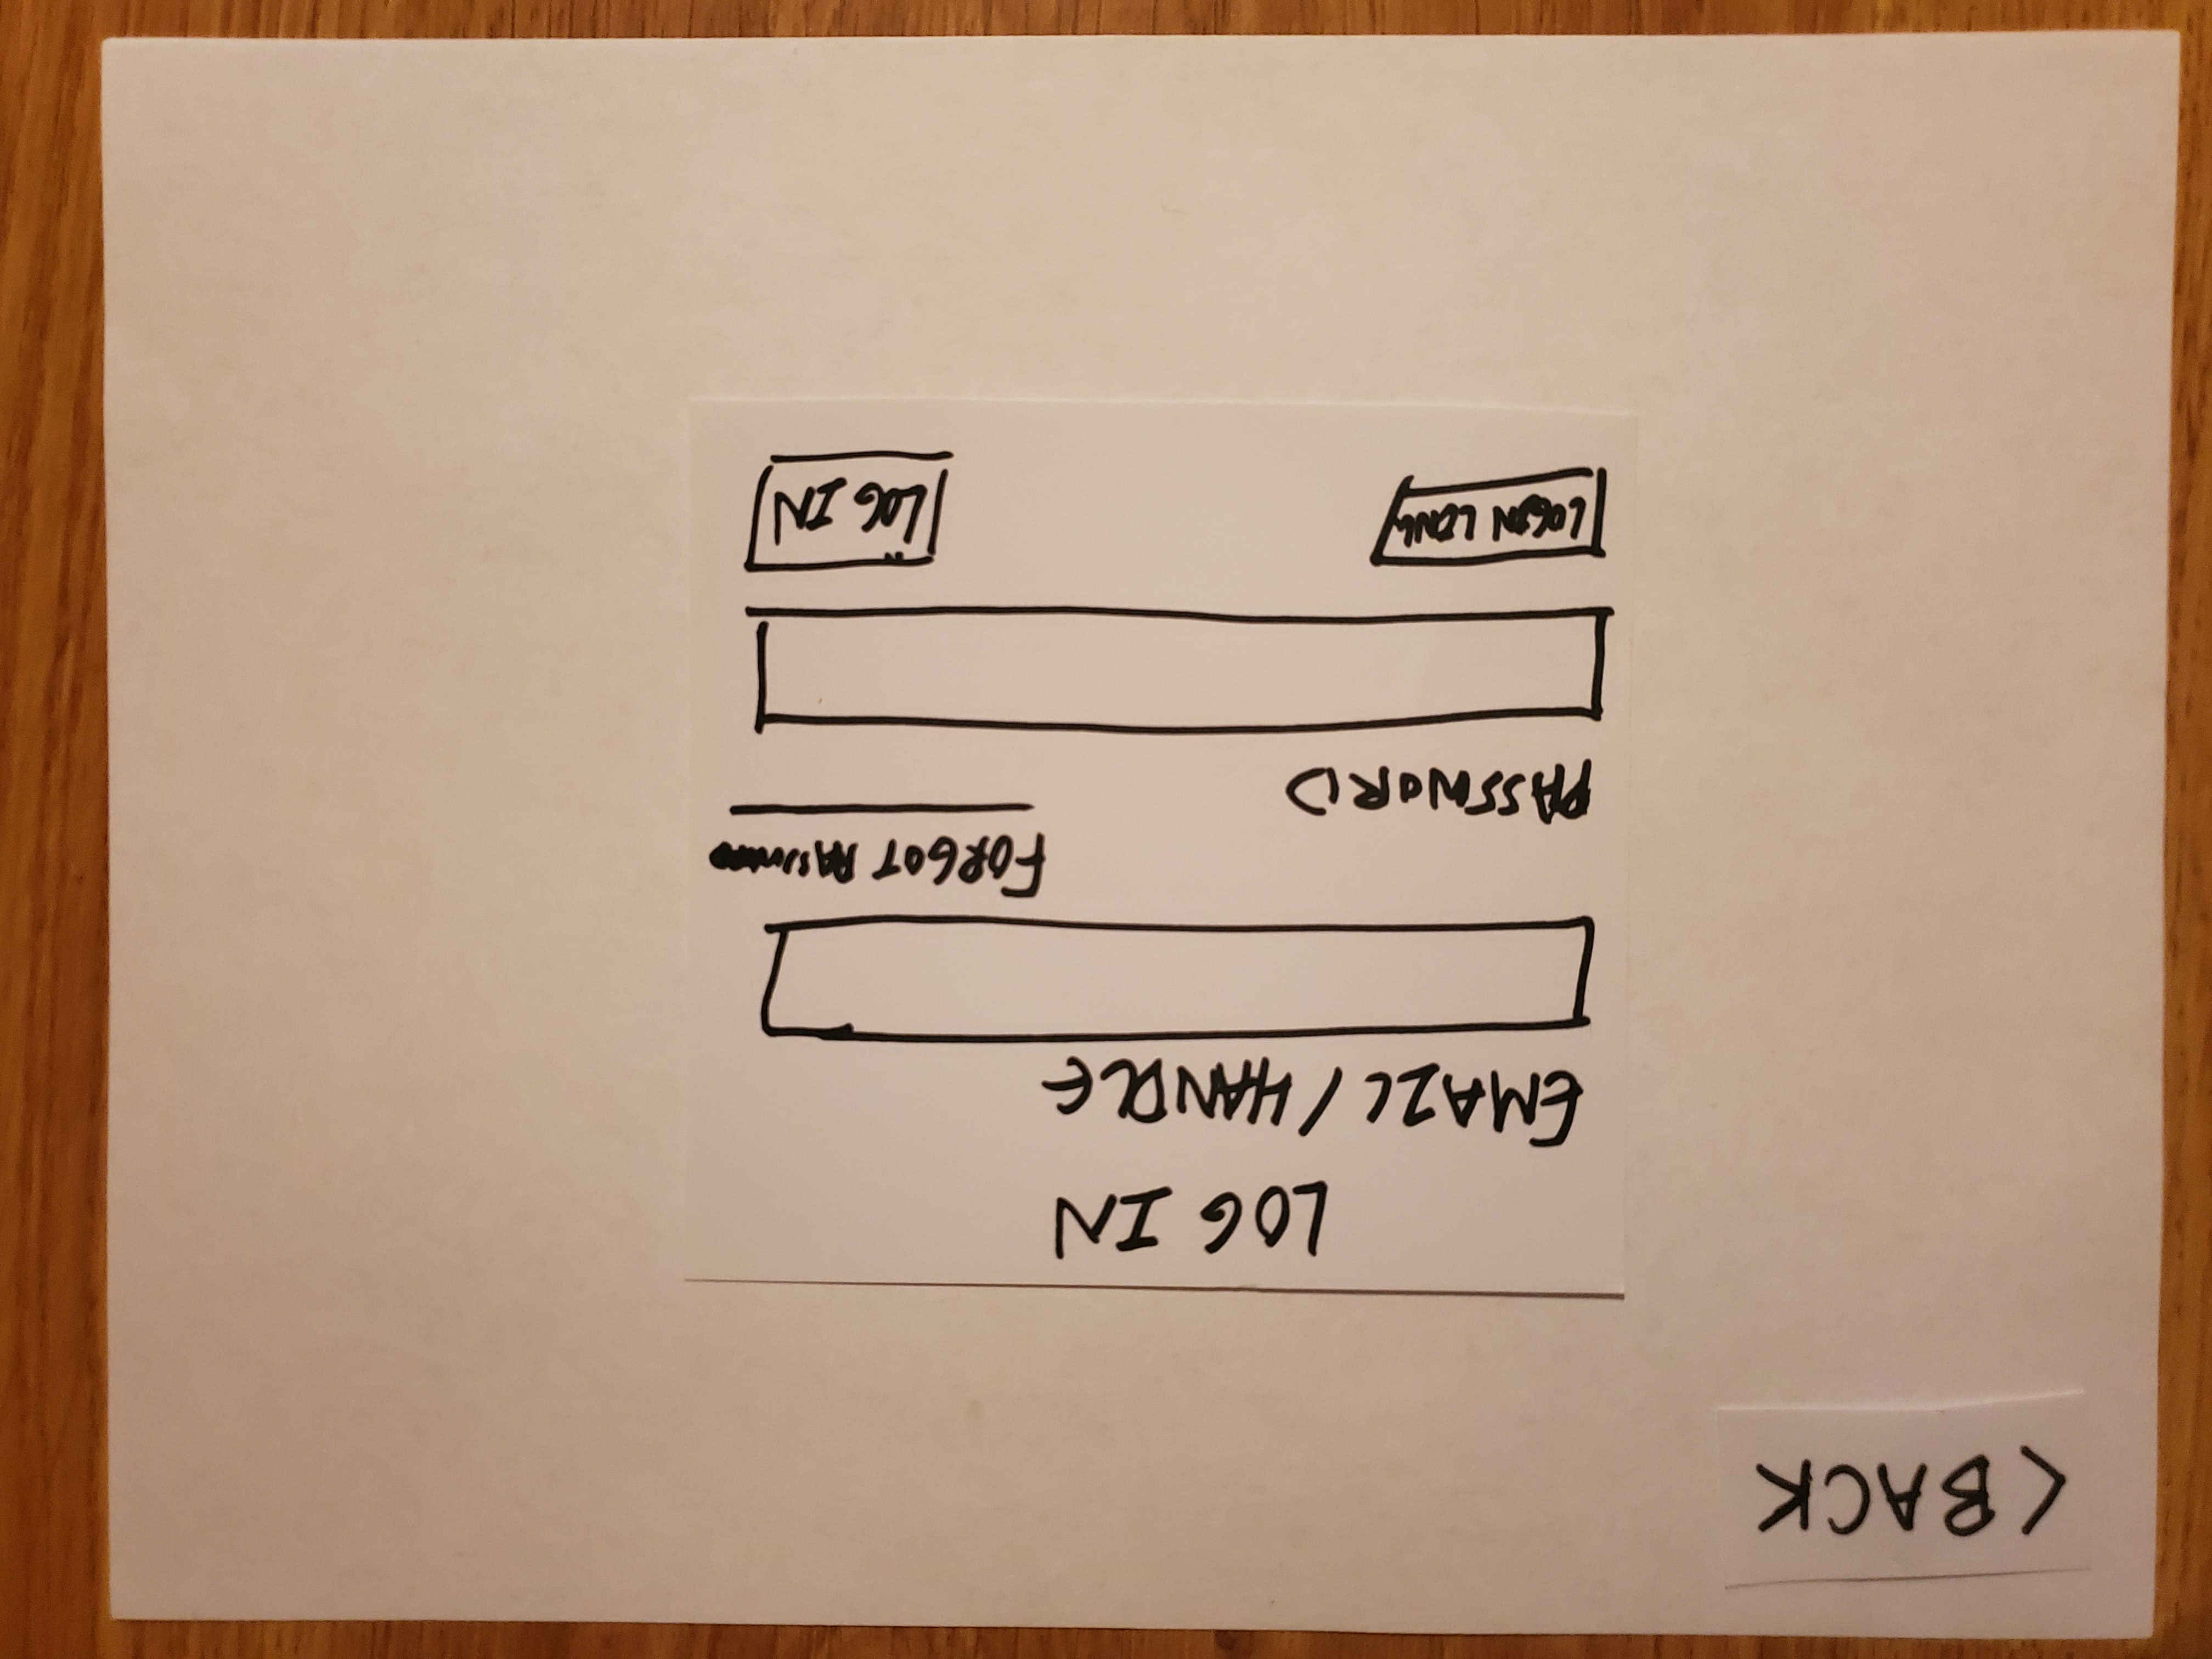 < BACK
LOG IN
EMAIL / HANDLE
FORGOT PASSWORD
PASSWORD
LOGIN LINK
LOG IN